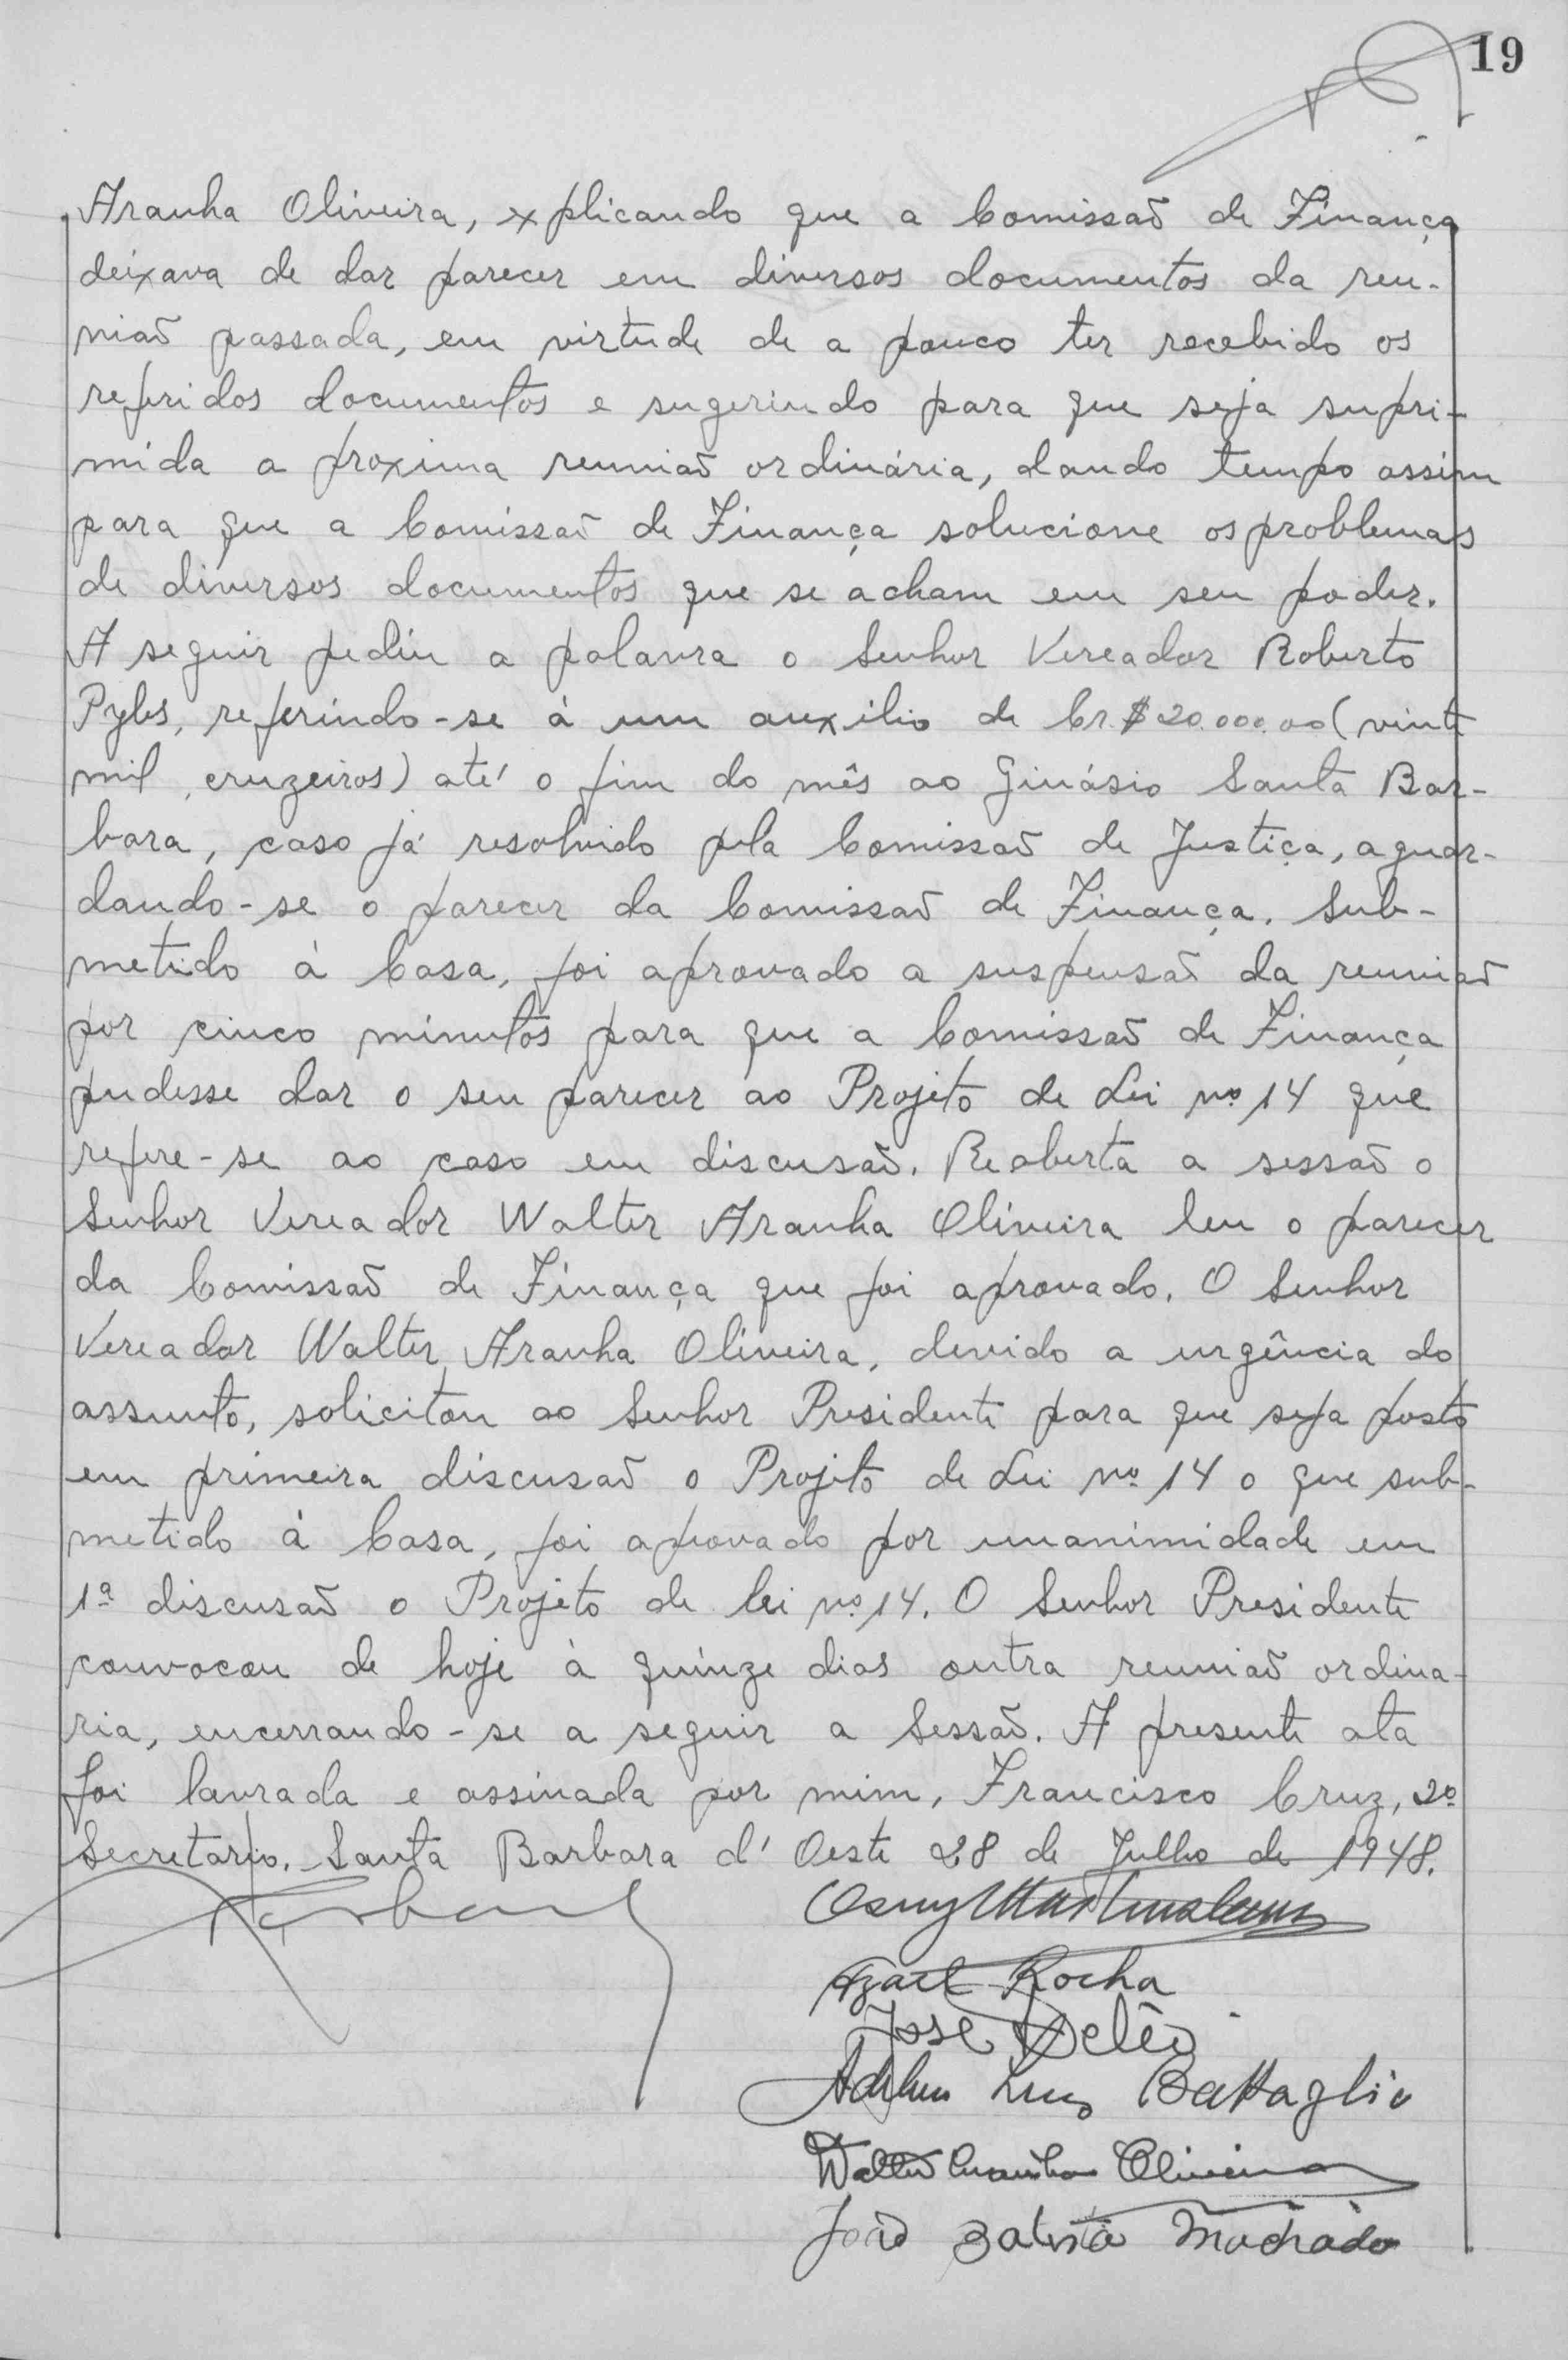 19
Aranha Oliveira, explicando que a Comissão de Finança
deixava de dar parecer em diversos documentos da reu-
nião passada, em virtude de a pouco ter recebido os
referidos documentos e sugerindo para que seja supri-
mida a proxima reunião ordinária, dando tempo assim
para que a Comissão de Finança solucione os problemas
de diversos documentos que se acham em seu poder.
A seguir pediu a palavra o Senhor Vereador Roberto
Pyles, referindo-se á um auxilio de Cr.$ 20.000.00 (vinte
mil cruzeiros) até o fim do mês ao Ginásio Santa Bar-
bara, caso já resolvido pela Comissão de Justiça, aguar-
dando-se o parecer da Comissão de Finança. Sub-
metido á Casa, foi aprovado a suspensão da reunião
por cinco minutos para que a Comissão de Finança
pudesse dar o seu parecer ao Projeto de Lei nº 14 que
refere-se ao caso em discusão. Reaberta a sessão o
Senhor Vereador Walter Aranha Oliveira leu o parecer
da Comissão de Finança que foi aprovado. O Senhor
Vereador Walter Aranha Oliveira, devido a urgência do
assunto, solicitou ao Senhor Presidente para que seja posto
em primeira discusão o Projeto de Lei nº 14 o que sub-
metido á Casa, foi aprovado por unanimidade em
1ª discusão o Projeto de lei nº 14. O Senhor Presidente
convocou de hoje á quinze dias outra reunião ordina-
ria, encerrando-se a seguir a Sessão. A presente ata
foi lavrada e assinada por mim, Francisco Cruz, 2º
Secretario. Santa Barbara d' Oeste 28 de Julho de 1948.
Rocha
José
Battaglia
Walter Aranha Oliveira
João Batista Machado